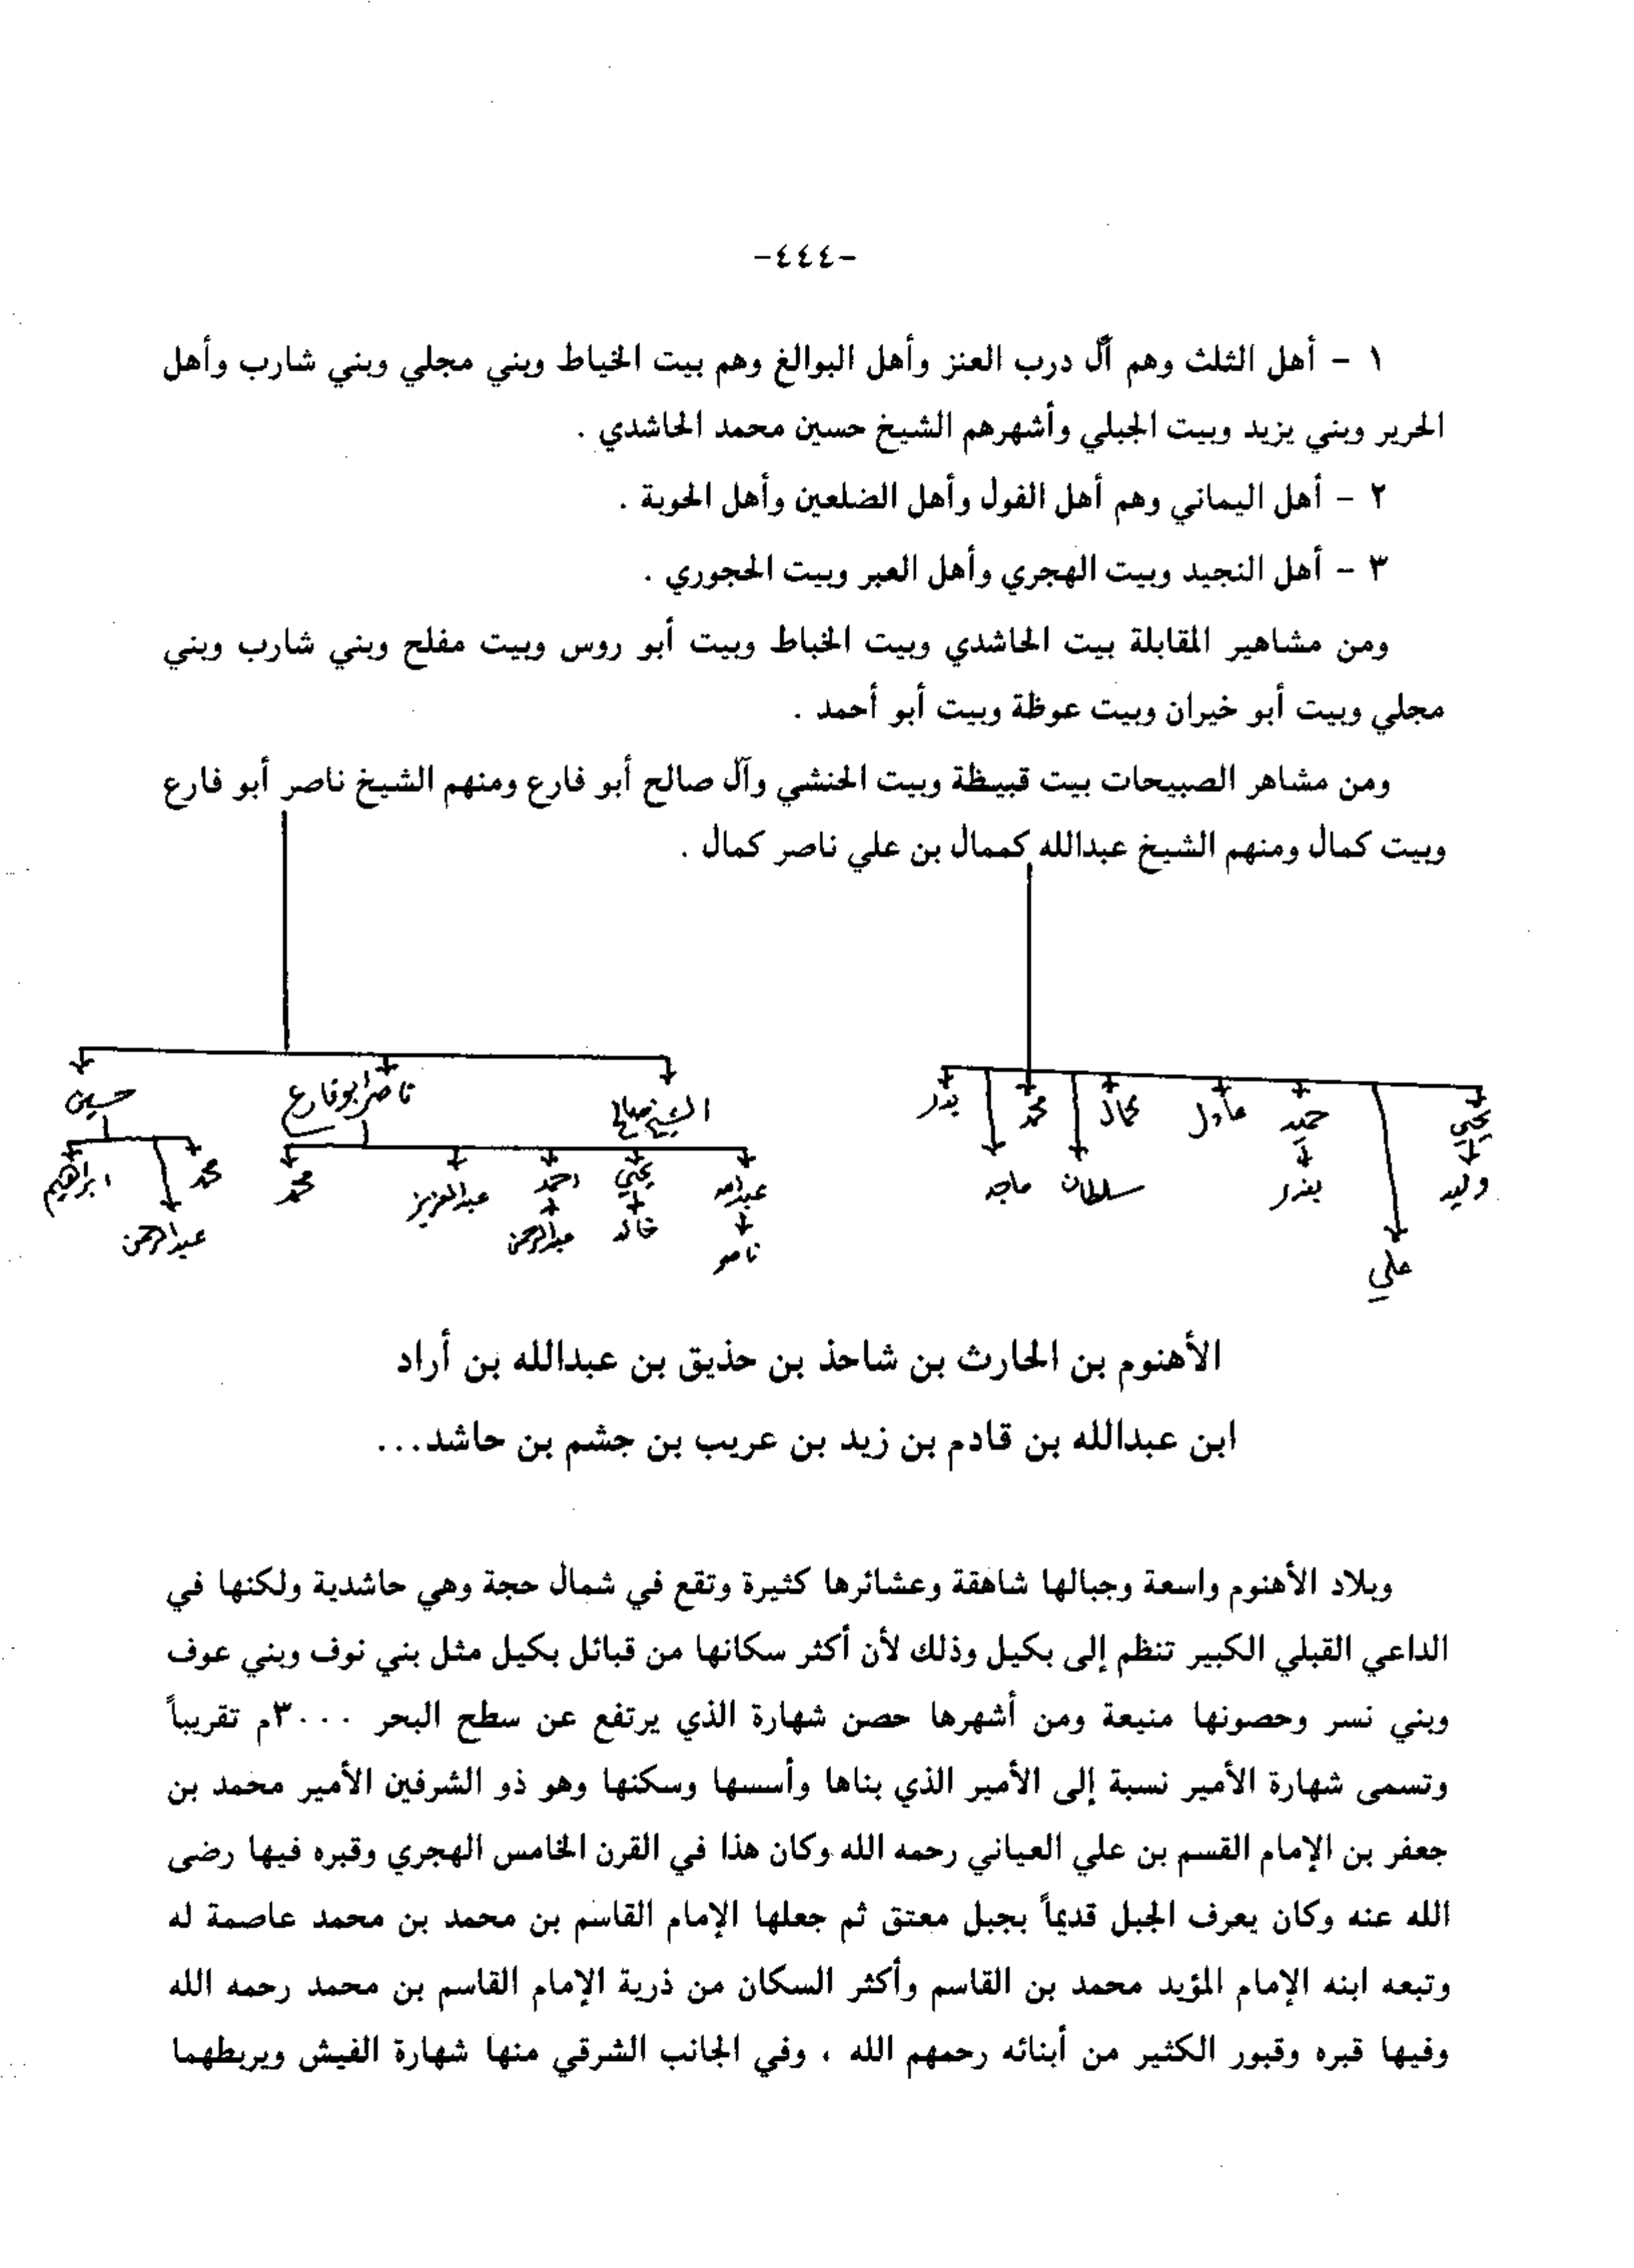 -٤٤٤-
١ - أهل الثلث وهم آل درب العنز وأهل البوالغ وهم بيت الخياط وبني مجلي وبني شارب وأهل
الحرير وبني يزيد وبيت الجبلي وأشهرهم الشيخ حسين محمد الحاشدي .
٢ - أهل اليماني وهم أهل الفول وأهل الضلعين وأهل الحوبة .
٣ - أهل النجيد وبيت الهجري وأهل العبر وبيت الحجوري .
ومن مشاهير المقابلة بيت الحاشدي وبيت الخباط وبيت أبو روس وبيت مفلح وبني شارب وبني
مجلي وبيت أبو خيران وبيت عوظة وبيت أبو أحمد .
ومن مشاهر الصبيحات بيت قبيظة وبيت الحنشي وآل صالح أبو فارع ومنهم الشيخ ناصر أبو فارع
وبيت كمال ومنهم الشيخ عبدالله كممال بن علي ناصر كمال .
يحيى حميد عادل كمال محمد بدر
وليد بندر سلطان ماجد
علي
الشيخ صالح ناصر ابو فارع حسين
عبدالله يحيى احمد عبدالعزيز محمد محمد ابراهيم
ناصر خالد عبدالرحمن عبدالرحمن
الأهنوم بن الحارث بن شاحذ بن حذيق بن عبدالله بن أراد
ابن عبدالله بن قادم بن زيد بن عريب بن جشم بن حاشد...
وبلاد الأهنوم واسعة وجبالها شاهقة وعشائرها كثيرة وتقع في شمال حجة وهي حاشدية ولكنها في
الداعي القبلي الكبير تنظم إلى بكيل وذلك لأن أكثر سكانها من قبائل بكيل مثل بني نوف وبني عوف
وبني نسر وحصونها منيعة ومن أشهرها حصن شهارة الذي يرتفع عن سطح البحر ٣٠٠٠م تقريباً
وتسمى شهارة الأمير نسبة إلى الأمير الذي بناها وأسسها وسكنها وهو ذو الشرفين الأمير محمد بن
جعفر بن الإمام القسم بن علي العياني رحمه الله وكان هذا في القرن الخامس الهجري وقبره فيها رضى
الله عنه وكان يعرف الجبل قديماً بجبل معتق ثم جعلها الإمام القاسم بن محمد بن محمد عاصمة له
وتبعه ابنه الإمام المؤيد محمد بن القاسم وأكثر السكان من ذرية الإمام القاسم بن محمد رحمه الله
وفيها قبره وقبور الكثير من أبنائه رحمهم الله ، وفي الجانب الشرقي منها شهارة الفيش ويربطهما